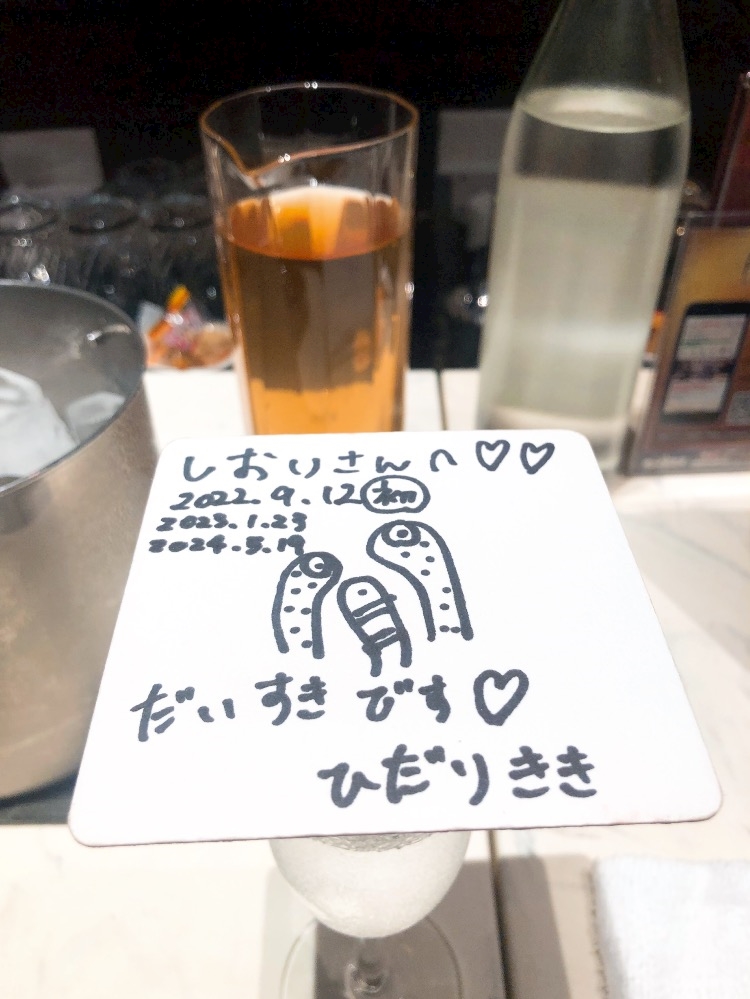 しおりさんへ♡♡
2022.9.12
2023.1.23
2024.5.19
だいすきです♡
ひだりきき